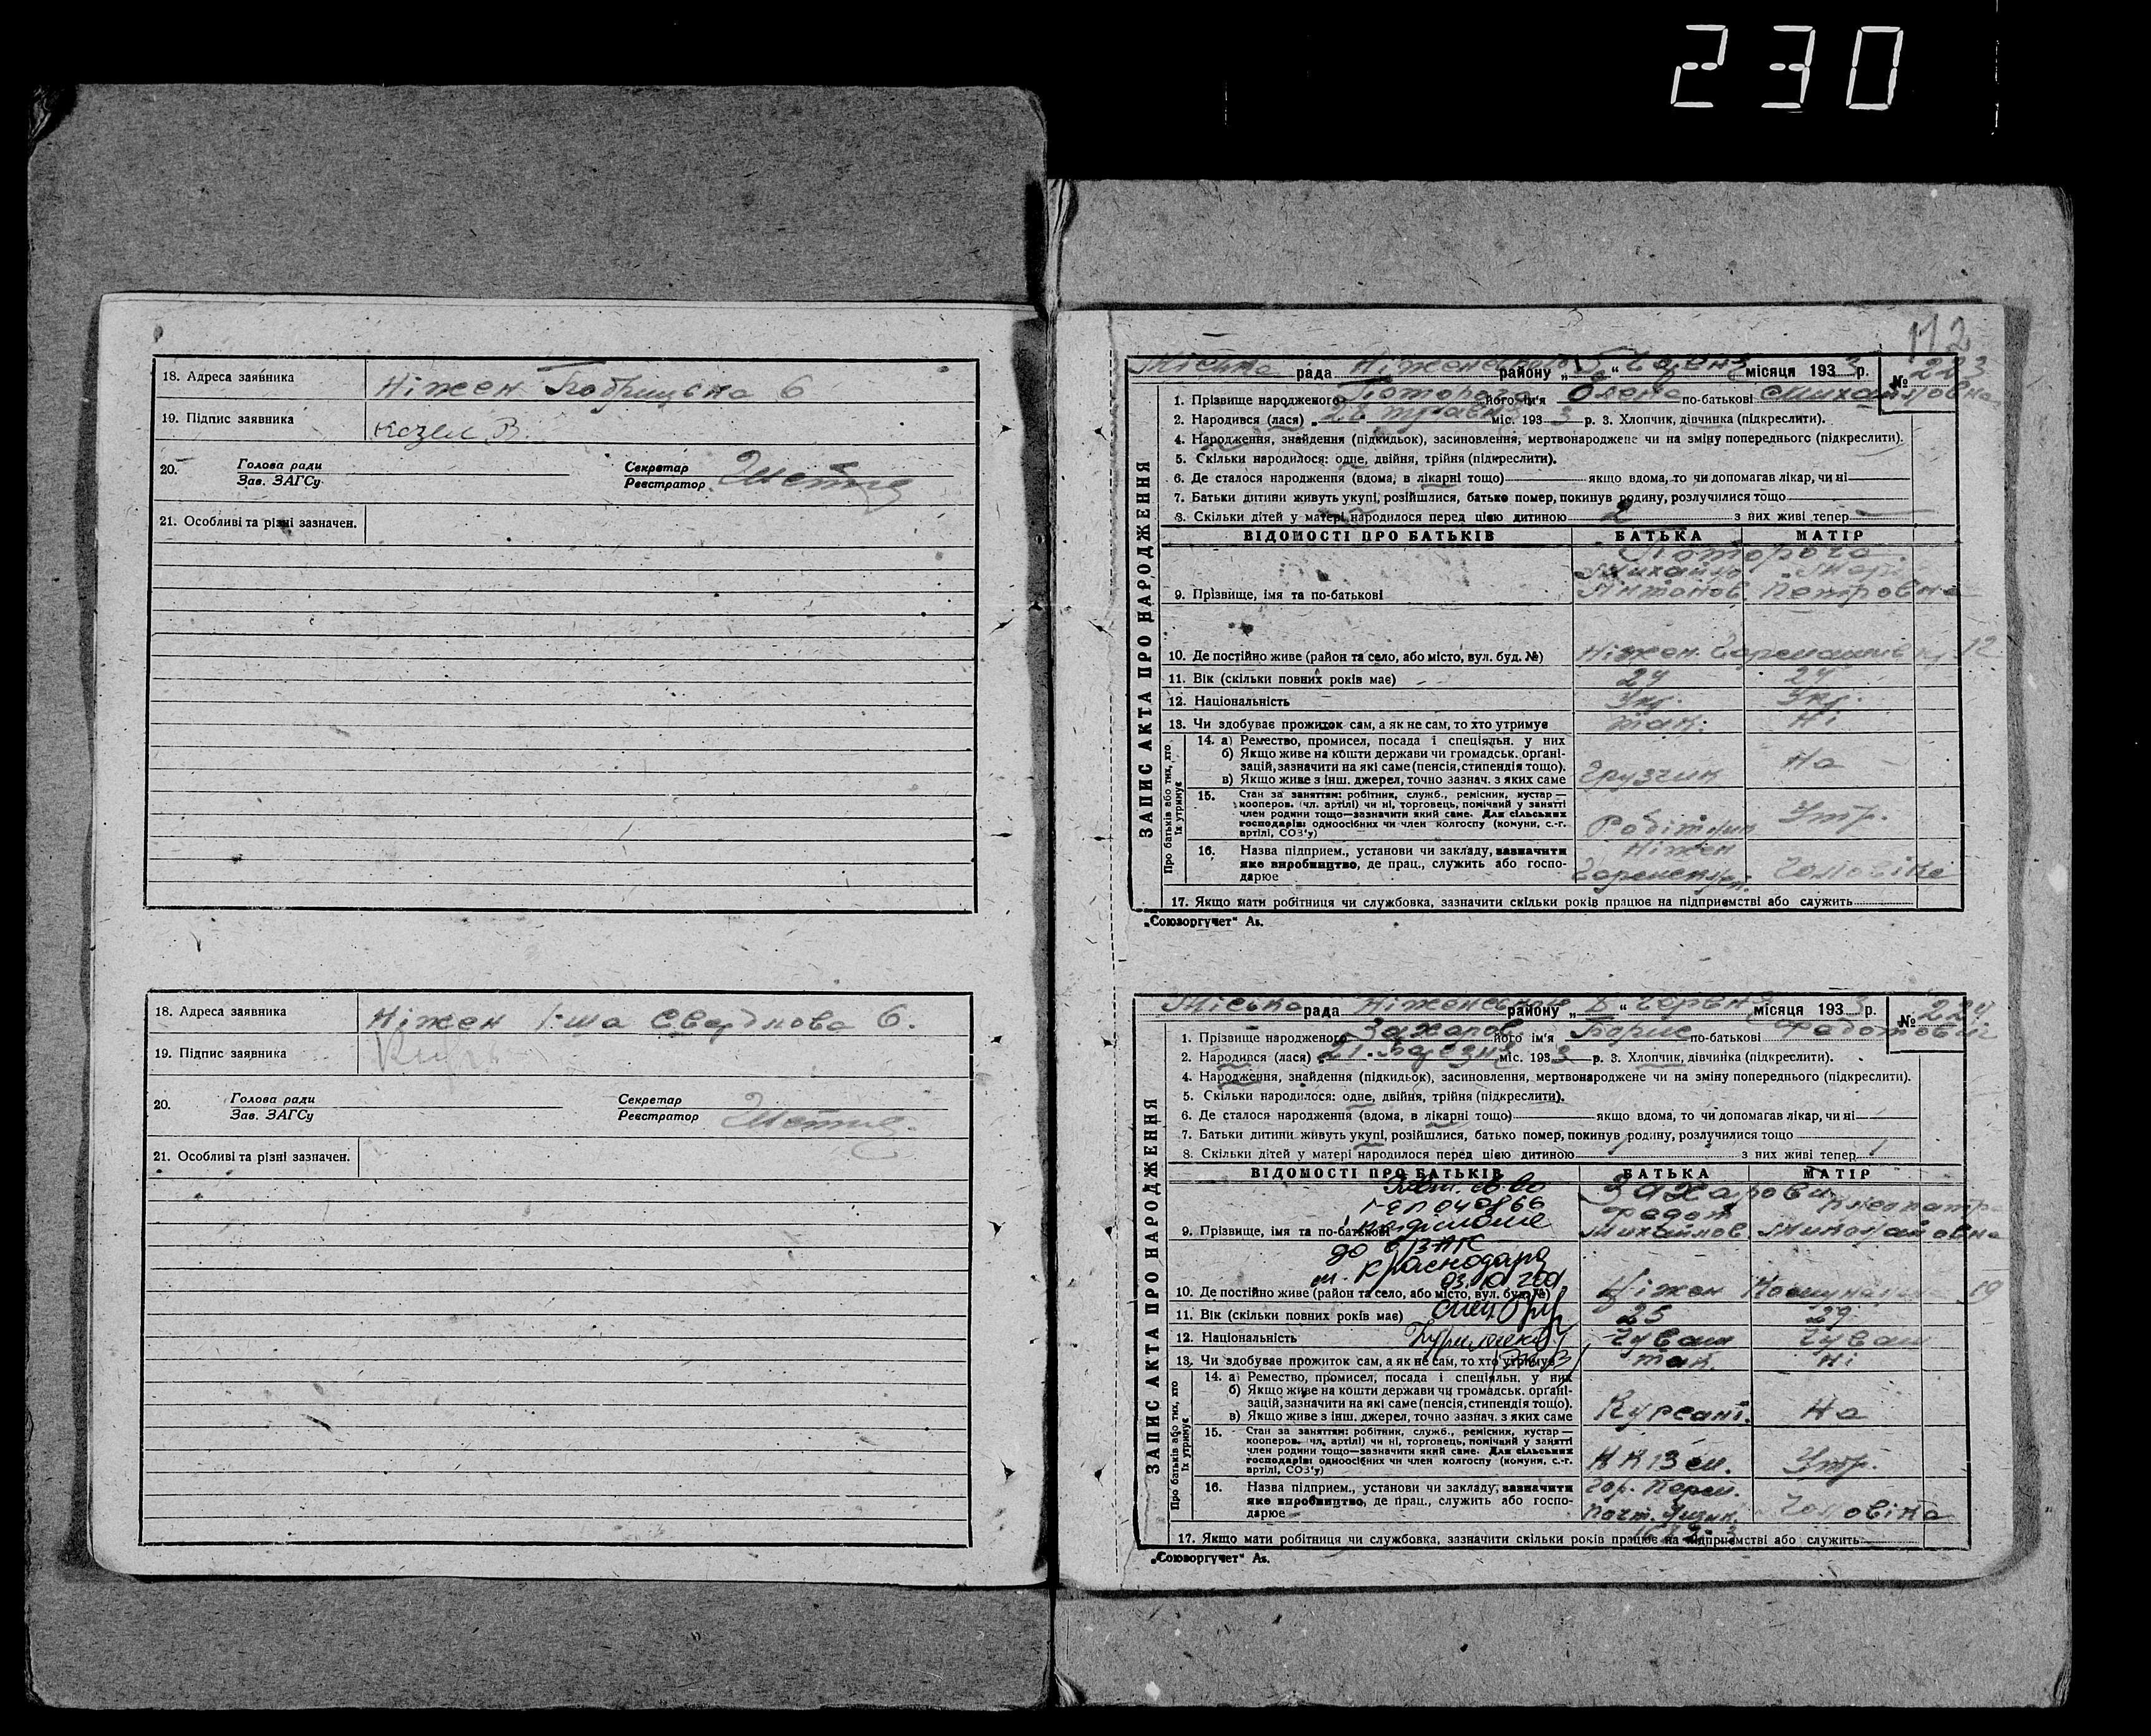 230
18. Адреса заявника Ніжен
19. Підпис заявника Козел В.
20. Голова ради Секретар
Зав. ЗАГСу Реєстратор
21. Особливі та різні зазначен.
18. Адреса заявника Ніжен 6.
19. Підпис заявника
20. Голова ради Секретар
Зав. ЗАГСу Реєстратор
21. Особливі та різні зазначен.
112
Міська рада Ніженського району „ “ Червня місяця 1933 р. № 223
ЗАПИС АКТА ПРО НАРОДЖЕННЯ
1. Прізвище народженого його ім'я Олена по-батькові Михайловна
2. Народився (лася) „ травня міс. 1933 р. 3. Хлопчик, дівчинка (підкреслити).
4. Народження, знайдення (підкидьок), засиновлення, мертвонароджене чи на зміну попереднього (підкреслити).
5. Скільки народилося: одне, двійня, трійня (підкреслити).
6. Де сталося народження (вдома, в лікарні тощо) якщо вдома, то чи допомагав лікар, чи ні
7. Батьки дитини живуть укупі, розійшлися, батько помер, покинув родину, розлучилися тощо
8. Скільки дітей у матері народилося перед цією дитиною 2 з них живі тепер
ВІДОМОСТІ ПРО БАТЬКІВ БАТЬКА МАТІР
Михайло
9. Прізвище, імя та по-батькові Антонов. Петровна
10. Де постійно живе (район та село, або місто, вул. буд. №) Ніжен 12
11. Вік (скільки повних років має) 24 24
12. Національність Укр. Укр.
13. Чи здобуває прожиток сам, а як не сам, то хто утримує так. Ні
Про батьків або тих, хто їх утримує
14. а) Ремество, промисел, посада і спеціяльн. у них
б) Якщо живе на кошти держави чи громадськ. органі-
зацій, зазначити на які саме (пенсія, стипендія тощо).
в) Якщо живе з інш. джерел, точно зазнач. з яких саме Грузчик На
15. Стан за заняттям: робітник, служб., ремісник, кустар—
кооперов. (чл. артілі) чи ні, торговець, помічний у занятті
член родини тощо—зазначити який саме. Для сільських
господарів: одноосібних чи член колгоспу (комуни, с.-г.
артілі, СОЗ'у) Робітник Утр.
16. Назва підприєм., установи чи закладу, зазначити
яке виробництво, де прац., служить або госпо-
дарює Ніжен Чоловіка
17. Якщо мати робітниця чи службовка, зазначити скільки років працює на підприємстві або служить
„Союзоргучет“ А₅.
Міська рада Ніженського району „ “ Червня місяця 1933 р. № 224
ЗАПИС АКТА ПРО НАРОДЖЕННЯ
1. Прізвище народженого Захаров його ім'я Борис по-батькові Федотович
2. Народився (лася) „21. Березня міс. 1933 р. 3. Хлопчик, дівчинка (підкреслити).
4. Народження, знайдення (підкидьок), засиновлення, мертвонароджене чи на зміну попереднього (підкреслити).
5. Скільки народилося: одне, двійня, трійня (підкреслити).
6. Де сталося народження (вдома, в лікарні тощо) якщо вдома, то чи допомагав лікар, чи ні
7. Батьки дитини живуть укупі, розійшлися, батько помер, покинув родину, розлучилися тощо
8. Скільки дітей у матері народилося перед цією дитиною з них живі тепер
ВІДОМОСТІ ПРО БАТЬКІВ БАТЬКА МАТІР
Захарови
Федот Клеопатра
9. Прізвище, імя та по-батькові Михайлов. Миколайовна
м. Краснодара
10. Де постійно живе (район та село, або місто, вул. буд. №) Ніжен 19
11. Вік (скільки повних років має) 25 29
12. Національність Чуваш Чуваш
13. Чи здобуває прожиток сам, а як не сам, то хто утримує так. ні
Про батьків або тих, хто їх утримує
14. а) Ремество, промисел, посада і спеціяльн. у них
б) Якщо живе на кошти держави чи громадськ. органі-
зацій, зазначити на які саме (пенсія, стипендія тощо).
в) Якщо живе з інш. джерел, точно зазнач. з яких саме Курсант. На
15. Стан за заняттям: робітник, служб., ремісник, кустар—
кооперов. чл. артілі) чи ні, торговець, помічний у занятті
член родини тощо—зазначити який саме. Для сільських
господарів: одноосібних чи член колгоспу (комуни, с.-г.
артілі, СОЗ'у) Утр.
16. Назва підприєм., установи чи закладу, зазначити
яке виробництво, де прац., служить або госпо-
дарює Чоловіка
17. Якщо мати робітниця чи службовка, зазначити скільки років працює на підприємстві або служить
„Союзоргучет“ А₅.